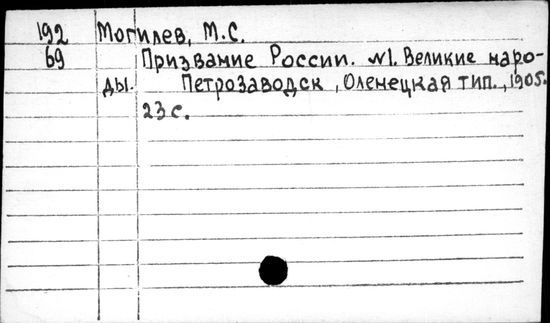 192 Могилев, М.С.
69 Призвание России. №1. Великие наро-
ды. Петрозаводск, Олонецкая тип., 1905.
23 с.